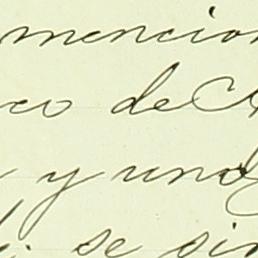 mencion
co de
y und
se sir